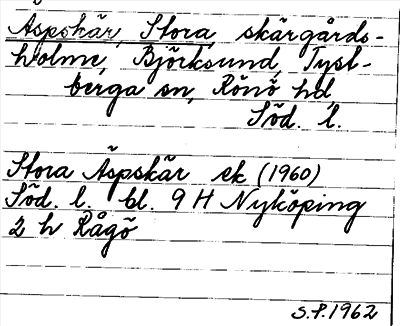 Äspskär, Stora, skärgårds-
holme, Björksund, Tyst-
berga sn, Rönö hd,
Söd. l.
Stora Äspskär ek (1960)
Söd. l. bl. 9 H Nyköping
2 h Rågö
S.P. 1962